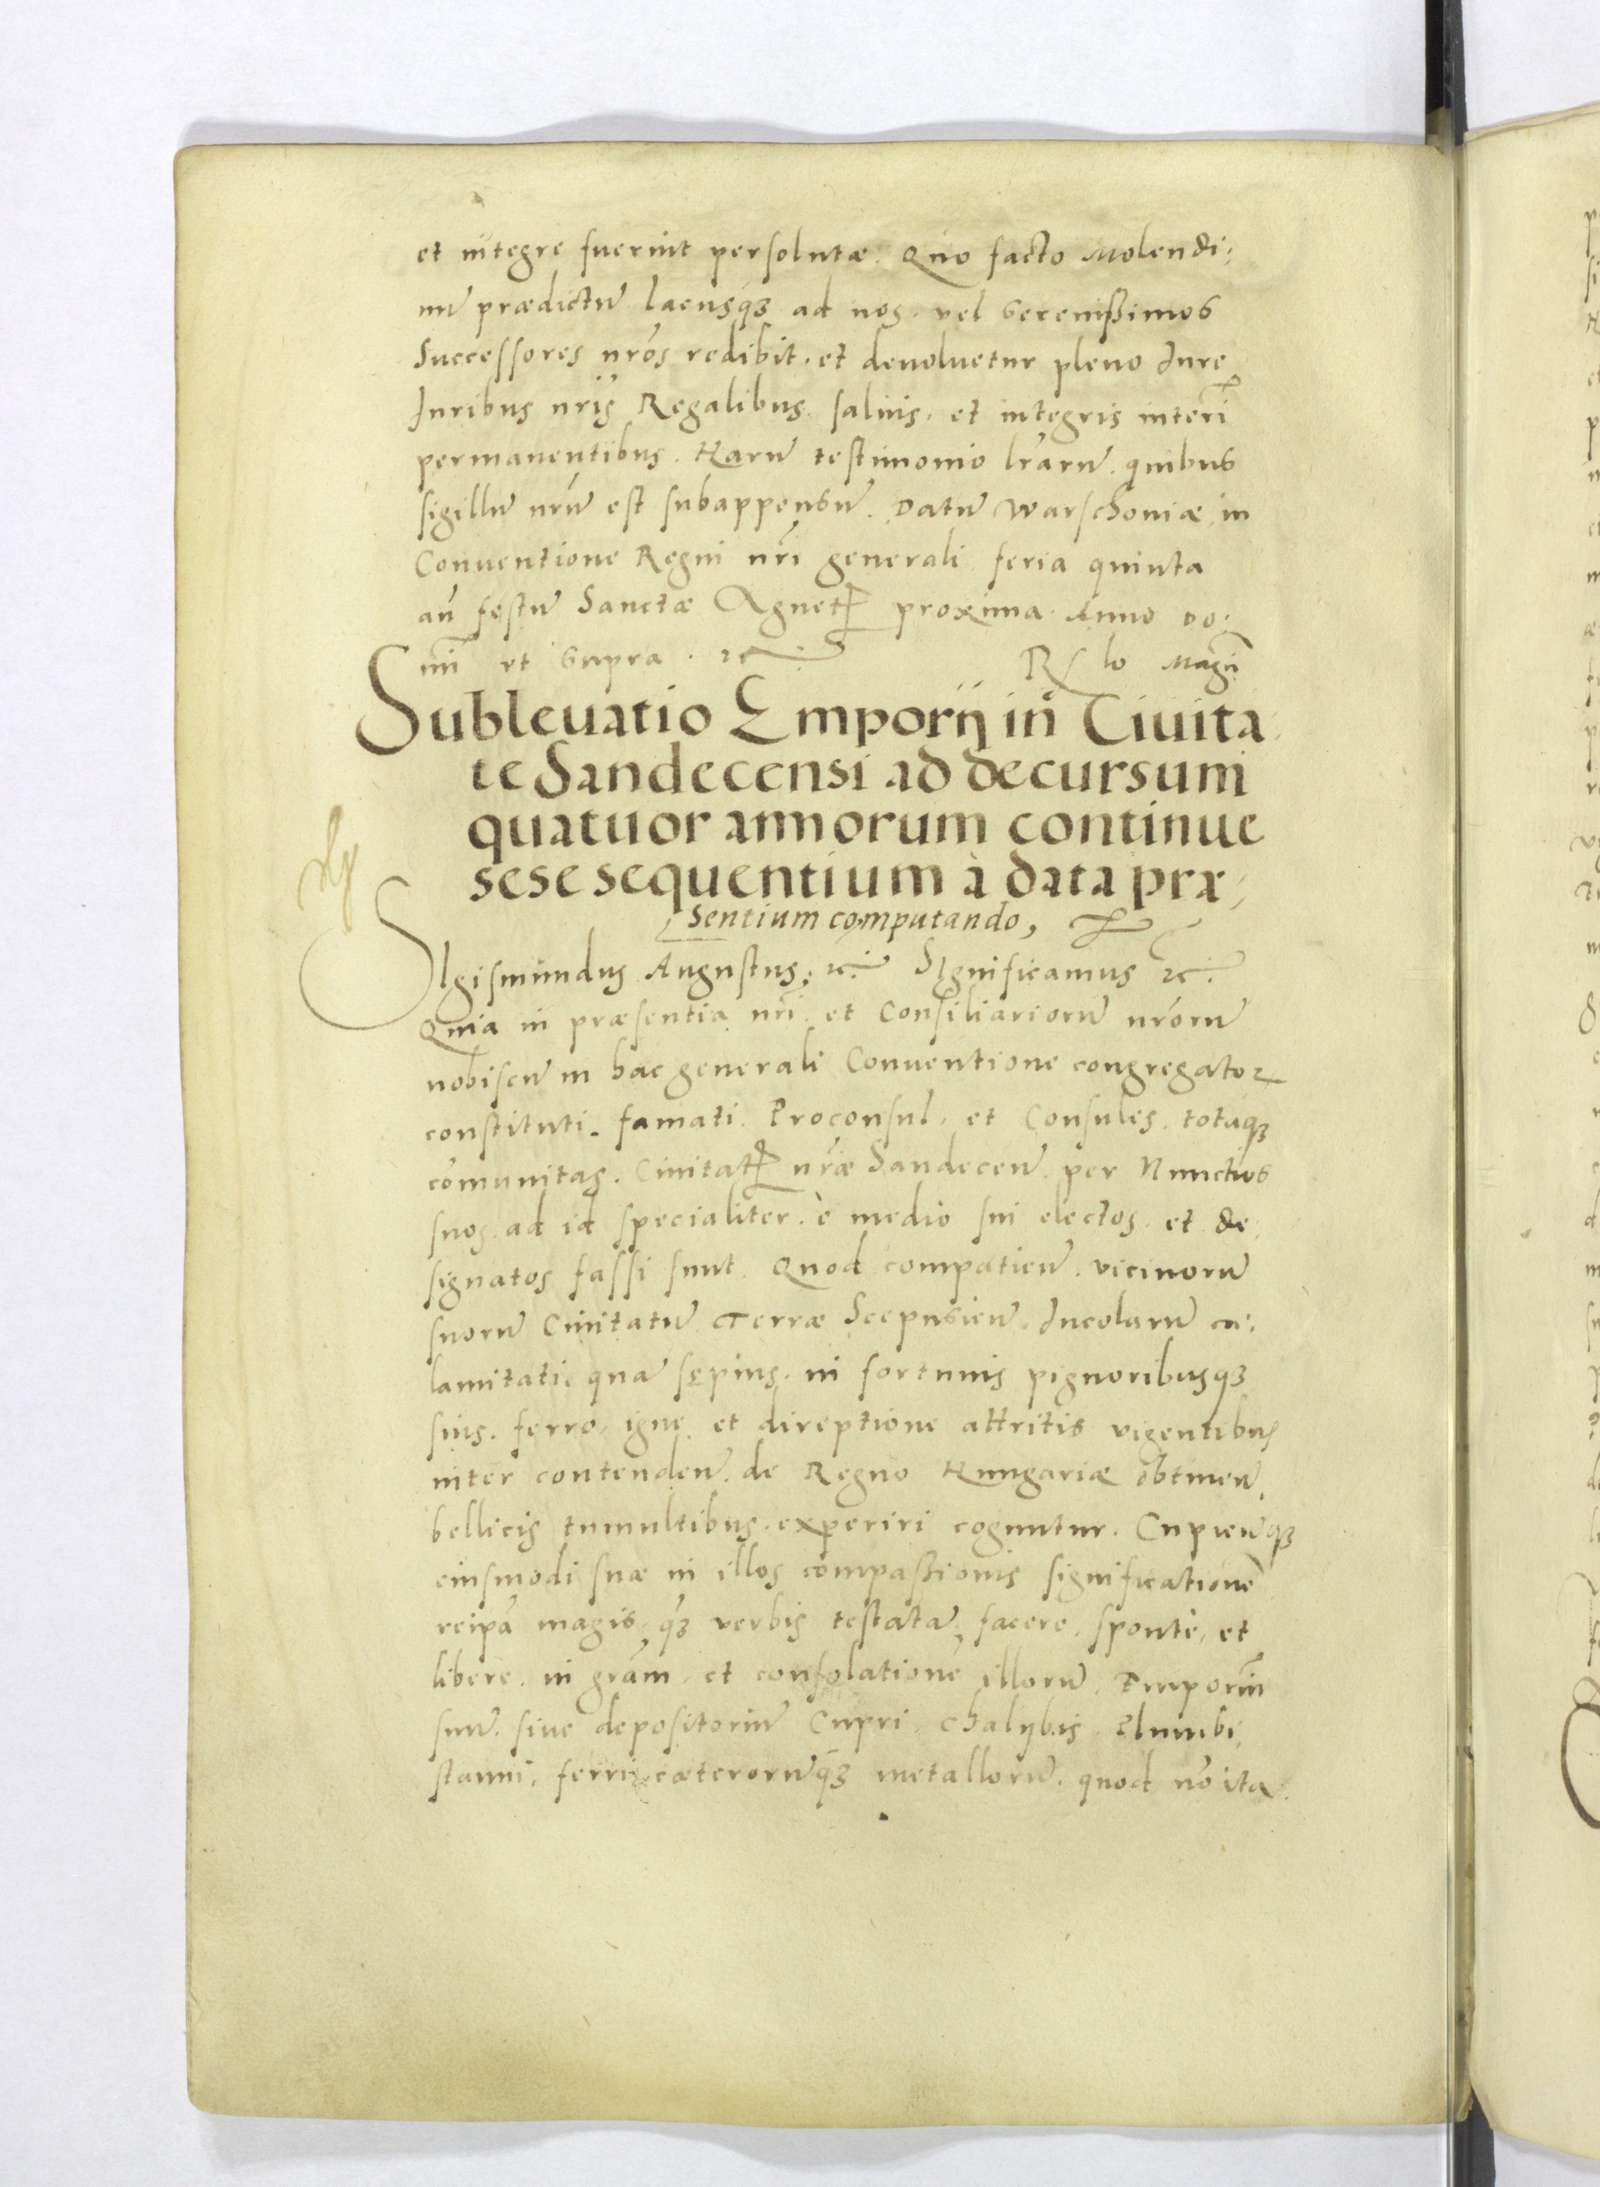 et integre fuerint persolutæ. Quo facto Molendi,
nū prædictū lacusqʒ ad nos. vel Serenissimos
Successores nrōs redibit. et devoluetur pleno Iure
Iuribus nrīs Regalibus. saluis. et integris interī
permanentibus. Harū testimonio lrārū. quibus
sigillū nrū est subappensū. Datū Warschouiæ in
Conuentione Regni nrī generali feria quinta
añ festū Sanctæ Agnetꝭ proxima. Anno Do,
mī vt supra. ꝛc
Rͣ lo Magrī
Subleuatio Emporij in Ciuita,
te Sandecensi ad decursum
quatuor annorum continue
sese sequentium à data præ,
sentium computando,
SIgismundus Augustus. ꝛc. SIgnificamus ꝛc.
Quia in præsentia nrī. et Consiliariorū nrōrū
nobiscū in hac generali Conuentione congregatoꝝ
constituti. famati. Proconsul. et Consules. totaqʒ
cōmunitas. Ciuitatꝭ nrǣ Sandeceñ. per Nunctios
suos. ad id specialiter. è medio sui electos. et de,
signatos fassi sunt. Quod compatieñ. vicinorū
suorū Ciuitatū Terræ Scepusieñ. Incolarū ca,
lamitati. quā sępius. in fortunis pignoribusqʒ
suis. ferro. igne. et direptione attritis vigentibus
inter contendeñ. de Regno Hungariæ obtineñ.
bellicis tumultibus. experiri coguntur. Cupieñqʒ
eiusmodi suæ in illos compassionis significationē
reipā magis qʒ verbis testatā facere. sponte, et
libere. in grām. et consolationē illorū. Emporiū
suū. siue depositoriū Cupri. Chalybis. Plumbi.
stanni. ferri cæterorūqʒ metallorū. quod nō ita